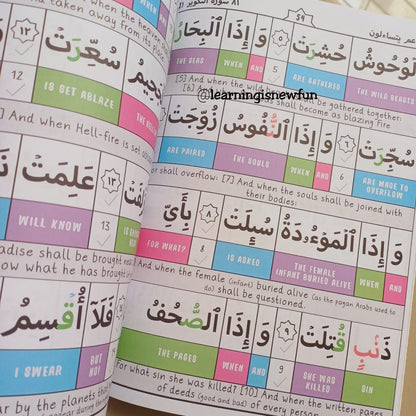 عم يتساءلون ٤٩ ٨١ سورة التكوير
الْوُحُوشُ حُشِرَتْ ٥ وَ إِذَا الْبِحَارُ
THE SEAS WHEN AND 5 ARE GATHERED THE WILD BEASTS
[5] And when the wild beasts shall be gathered together:
@learningisnewfun
[6] shall become as blazing Fire
سُجِّرَتْ ٦ وَ إِذَا النُّفُوسُ زُوِّجَتْ
ARE PAIRED THE SOULS WHEN AND 6 ARE MADE TO OVERFLOW
or shall overflow: [7] And when the souls shall be joined with
their bodies:
وَ إِذَا الْمَوْءُدَةُ سُئِلَتْ ٨ بِأَيِّ
FOR WHAT? 8 IS ASKED THE FEMALE INFANT BURIED ALIVE WHEN AND
And when the female (infant) buried alive (as the pagan Arabs used to
do) shall be questioned.
ذَنْبٍ قُتِلَتْ ٩ وَ إِذَا الصُّحُفُ
THE PAGES WHEN AND 9 SHE WAS KILLED SIN
For what sin she was killed? [10] And when the written pages
of deeds (good and bad) of every person
taken away from its
And when the heaven
١٢ سُعِّرَتْ
12 IS SET ABLAZE
And when Hell-fire is set
١٣ عَلِمَتْ
WILL KNOW 13
adise shall be brought
now what he has brought
فَلَآ أُقْسِمُ
I SWEAR BUT NO!
ar by the planets that